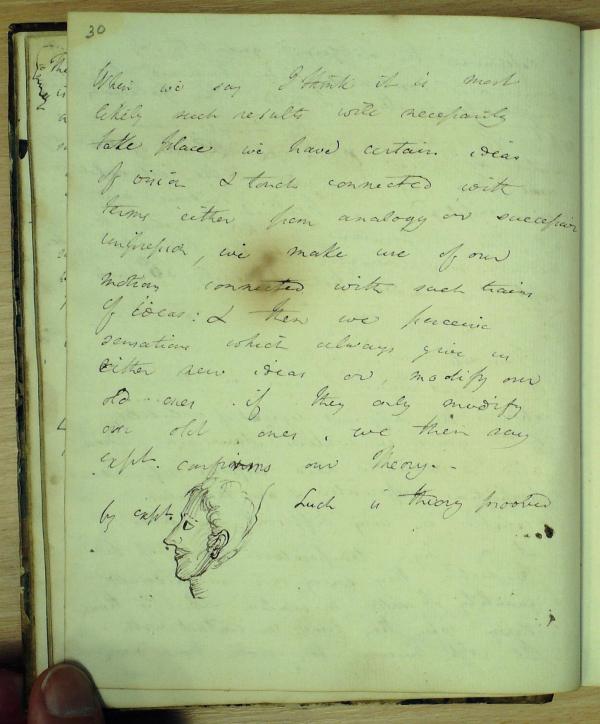 30
When we say I think it is most
likely such results will necessarily
take place we have certain ideas
of vision & touch connected with
terms either from analogy or successive
impression, we make use of our
motions connected with such trains
of ideas: & then we perceive
sensations which always give us
either new ideas or, modify our
old ones if they only modify
our old ones, we then say
expt. confirms our theory.
by expt. Such is theory prooved